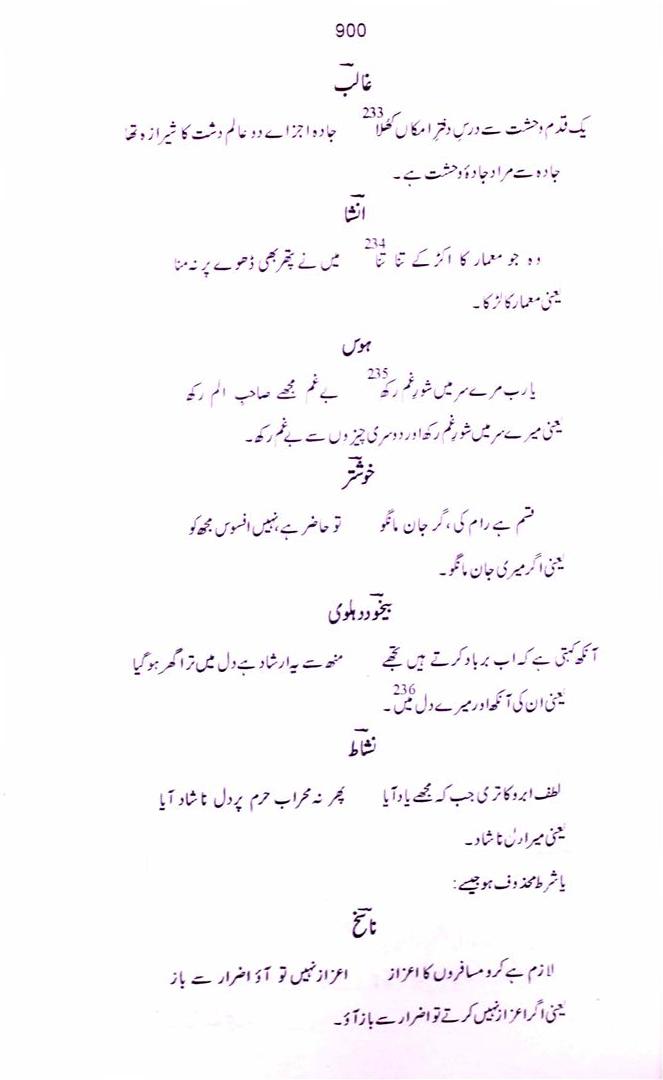 900
غالبؔ
یک قدم وحشت سے درسِ دفترِ امکاں کھُلا 233 جادہ اجزاے دو عالم دشت کا شیرازہ تھا
جادہ سے مراد جادۂ وحشت ہے۔
انشاؔ
وہ جو معمار کا اکڑ کے تنا تنا 234 میں نے پتھر بھی ڈھوے پر نہ منا
یعنی معمار کا لڑکا۔
ہوس
یارب مرے سر میں شورِ غم رکھ 235 بے غم مجھے صاحبِ الم رکھ
یعنی میرے سر میں شورِ غم رکھ اور دوسری چیزوں سے بے غم رکھ۔
خوشترؔ
قسم ہے رام کی، گر جان مانگو تو حاضر ہے، نہیں افسوس مجھ کو
یعنی اگر میری جان مانگو۔
بیخودؔ دہلوی
آنکھ کہتی ہے کہ اب برباد کرتے ہیں تجھے منھ سے یہ ارشاد ہے دل میں ترا گھر ہو گیا
یعنی ان کی آنکھ اور میرے دل میں 236۔
نشاطؔ
لطف ابرو کا تری جب کہ مجھے یاد آیا پھر نہ محراب حرم پر دل ناشاد آیا
یعنی میرا دل ناشاد۔
یا شرط محذوف ہو جیسے:
ناسخؔ
لازم ہے کرو مسافروں کا اعزاز اعزاز نہیں تو آؤ اضرار سے باز
یعنی اگر اعزاز نہیں کرتے تو اضرار سے باز آؤ۔